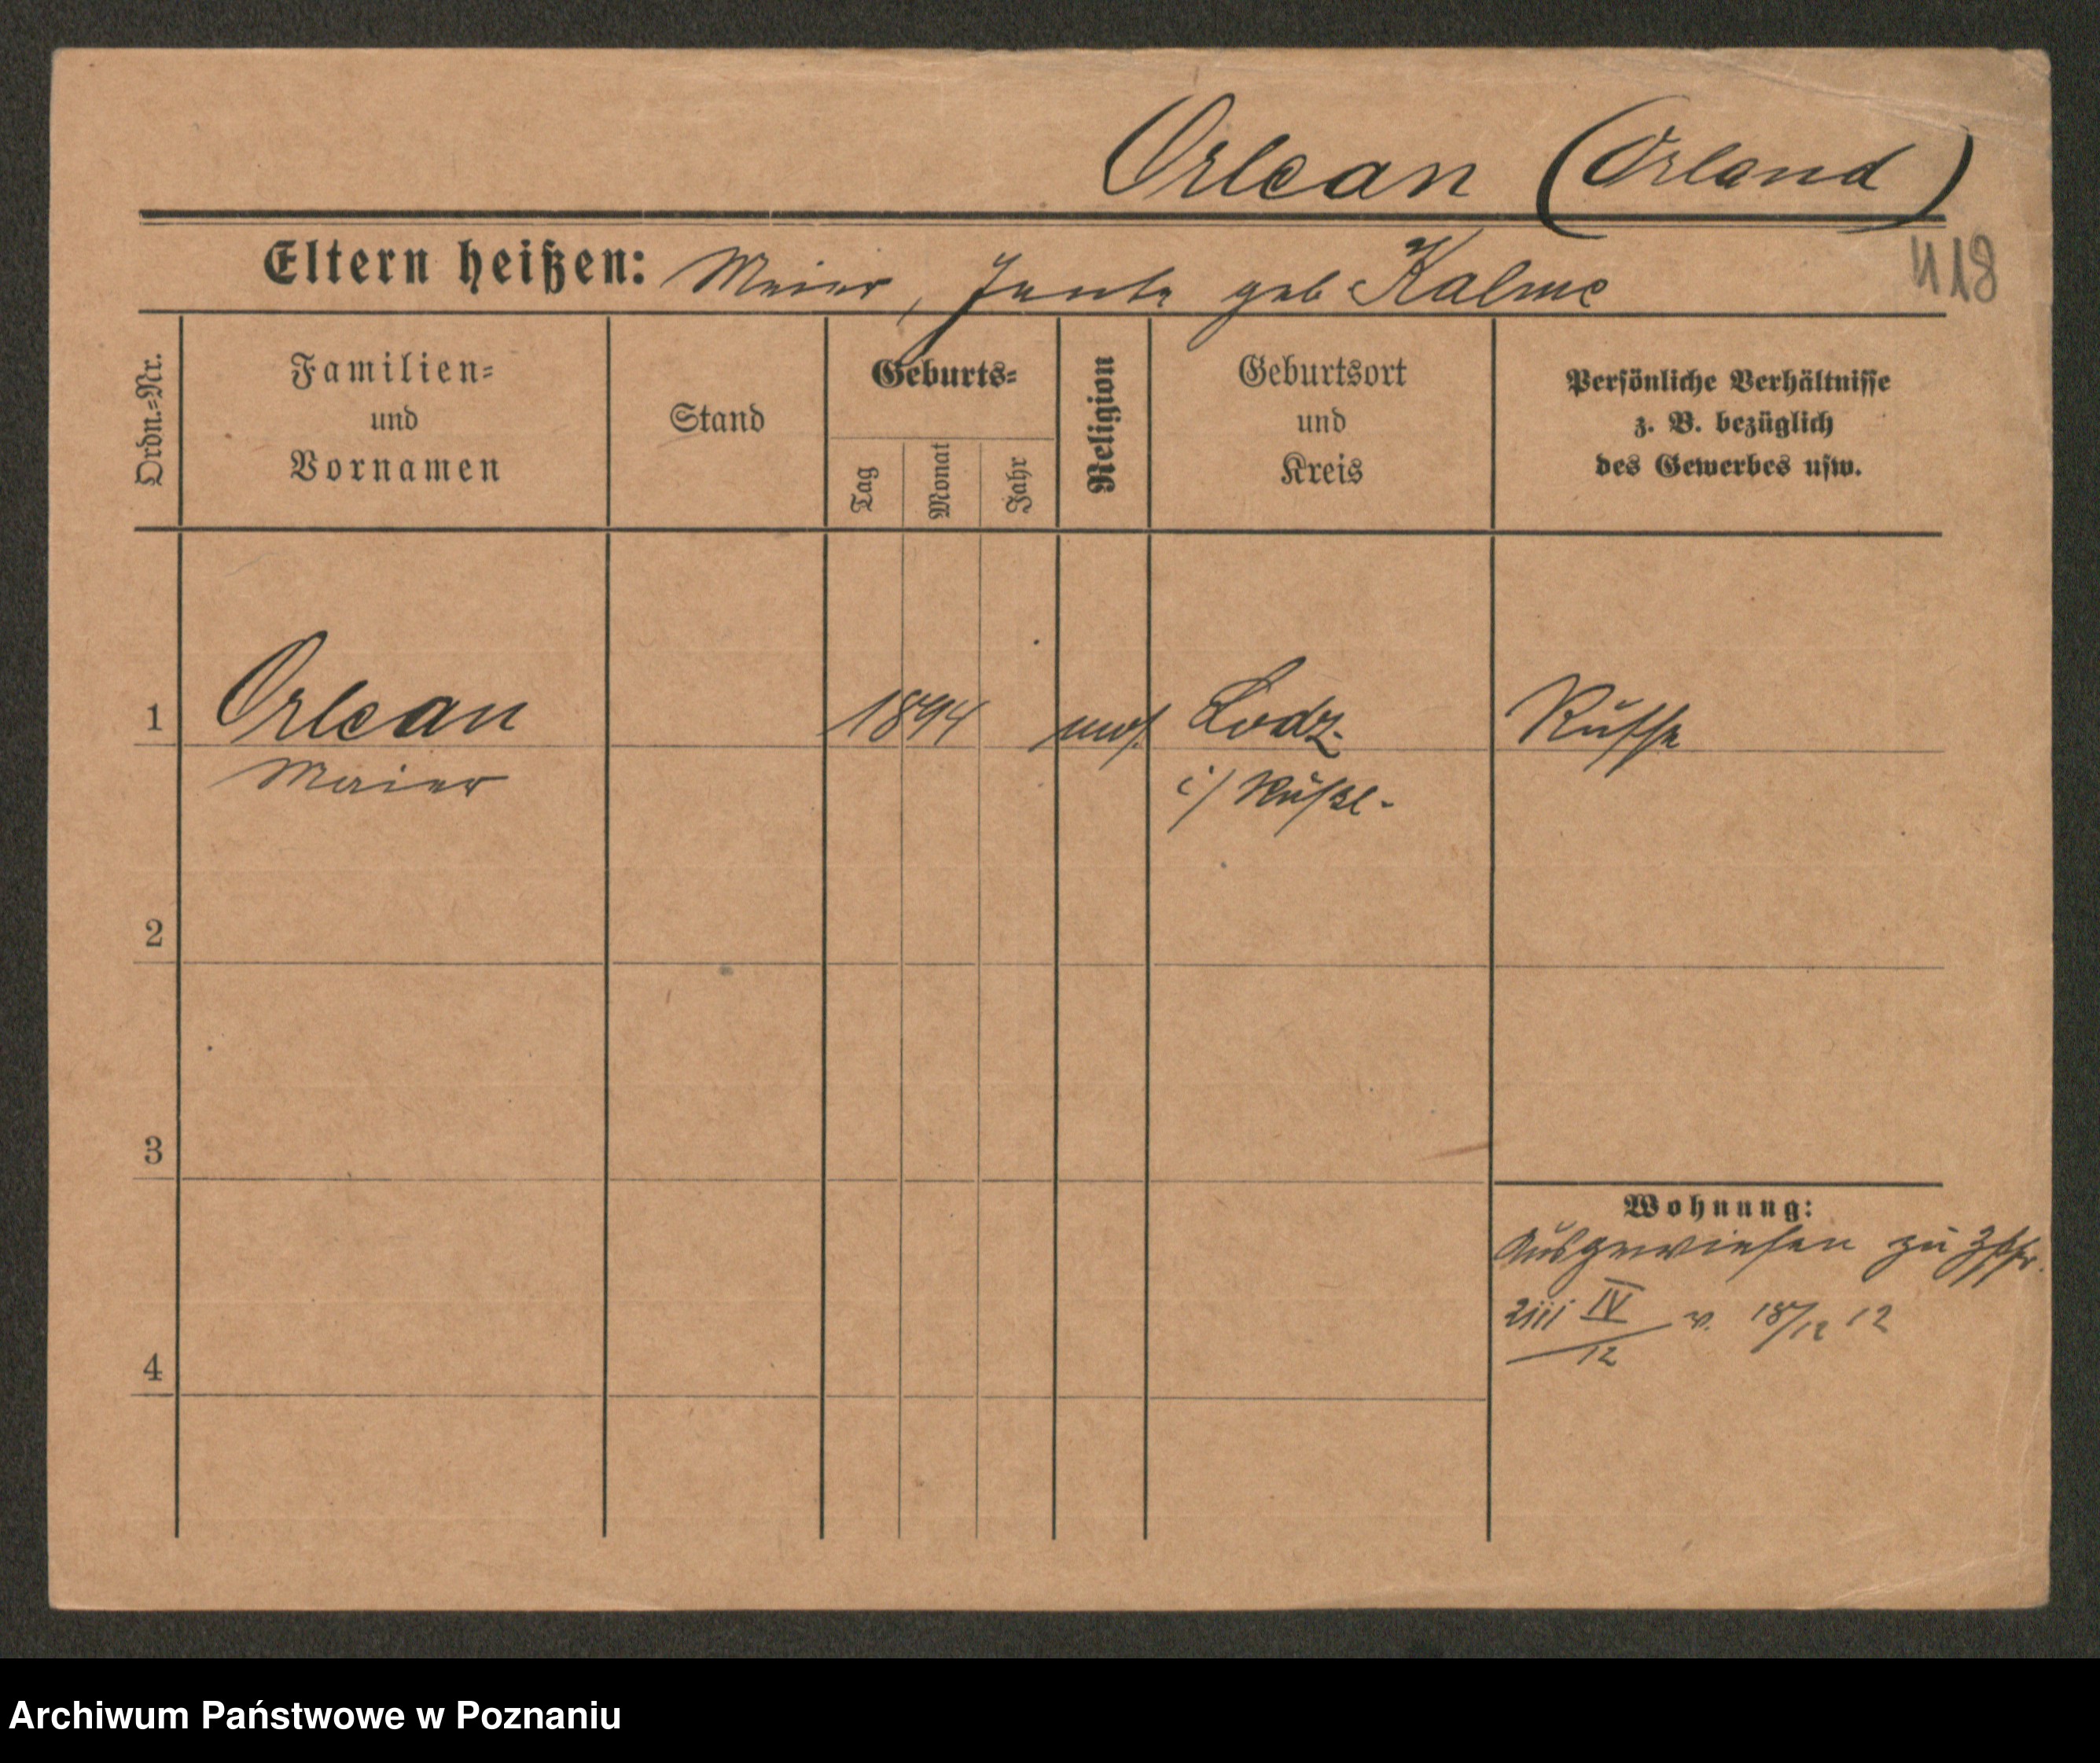 Orlean (Orland)
Eltern heißen: Meier, Jente geb Kalme
418
Ordn.=Nr.
Familien=
und
Vornamen
Stand
Geburts=
Tag
Monat
Jahr
Religion
Geburtsort
und
Kreis
Persönliche Verhältnisse
z. B. bezüglich
des Gewerbes usw.
1 Orlean 1894 mos. Lodz Russe
Maier i/ Rußl.
2
3
Wohnung:
Ausgewiesen zu
IV
12 v. 18/12 12
4
Archiwum Państwowe w Poznaniu